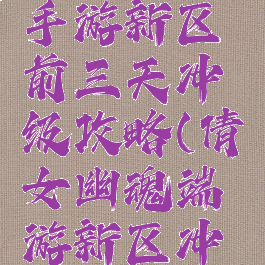 手游新区
前三天冲
级攻略(倩
女幽魂端
游新区冲